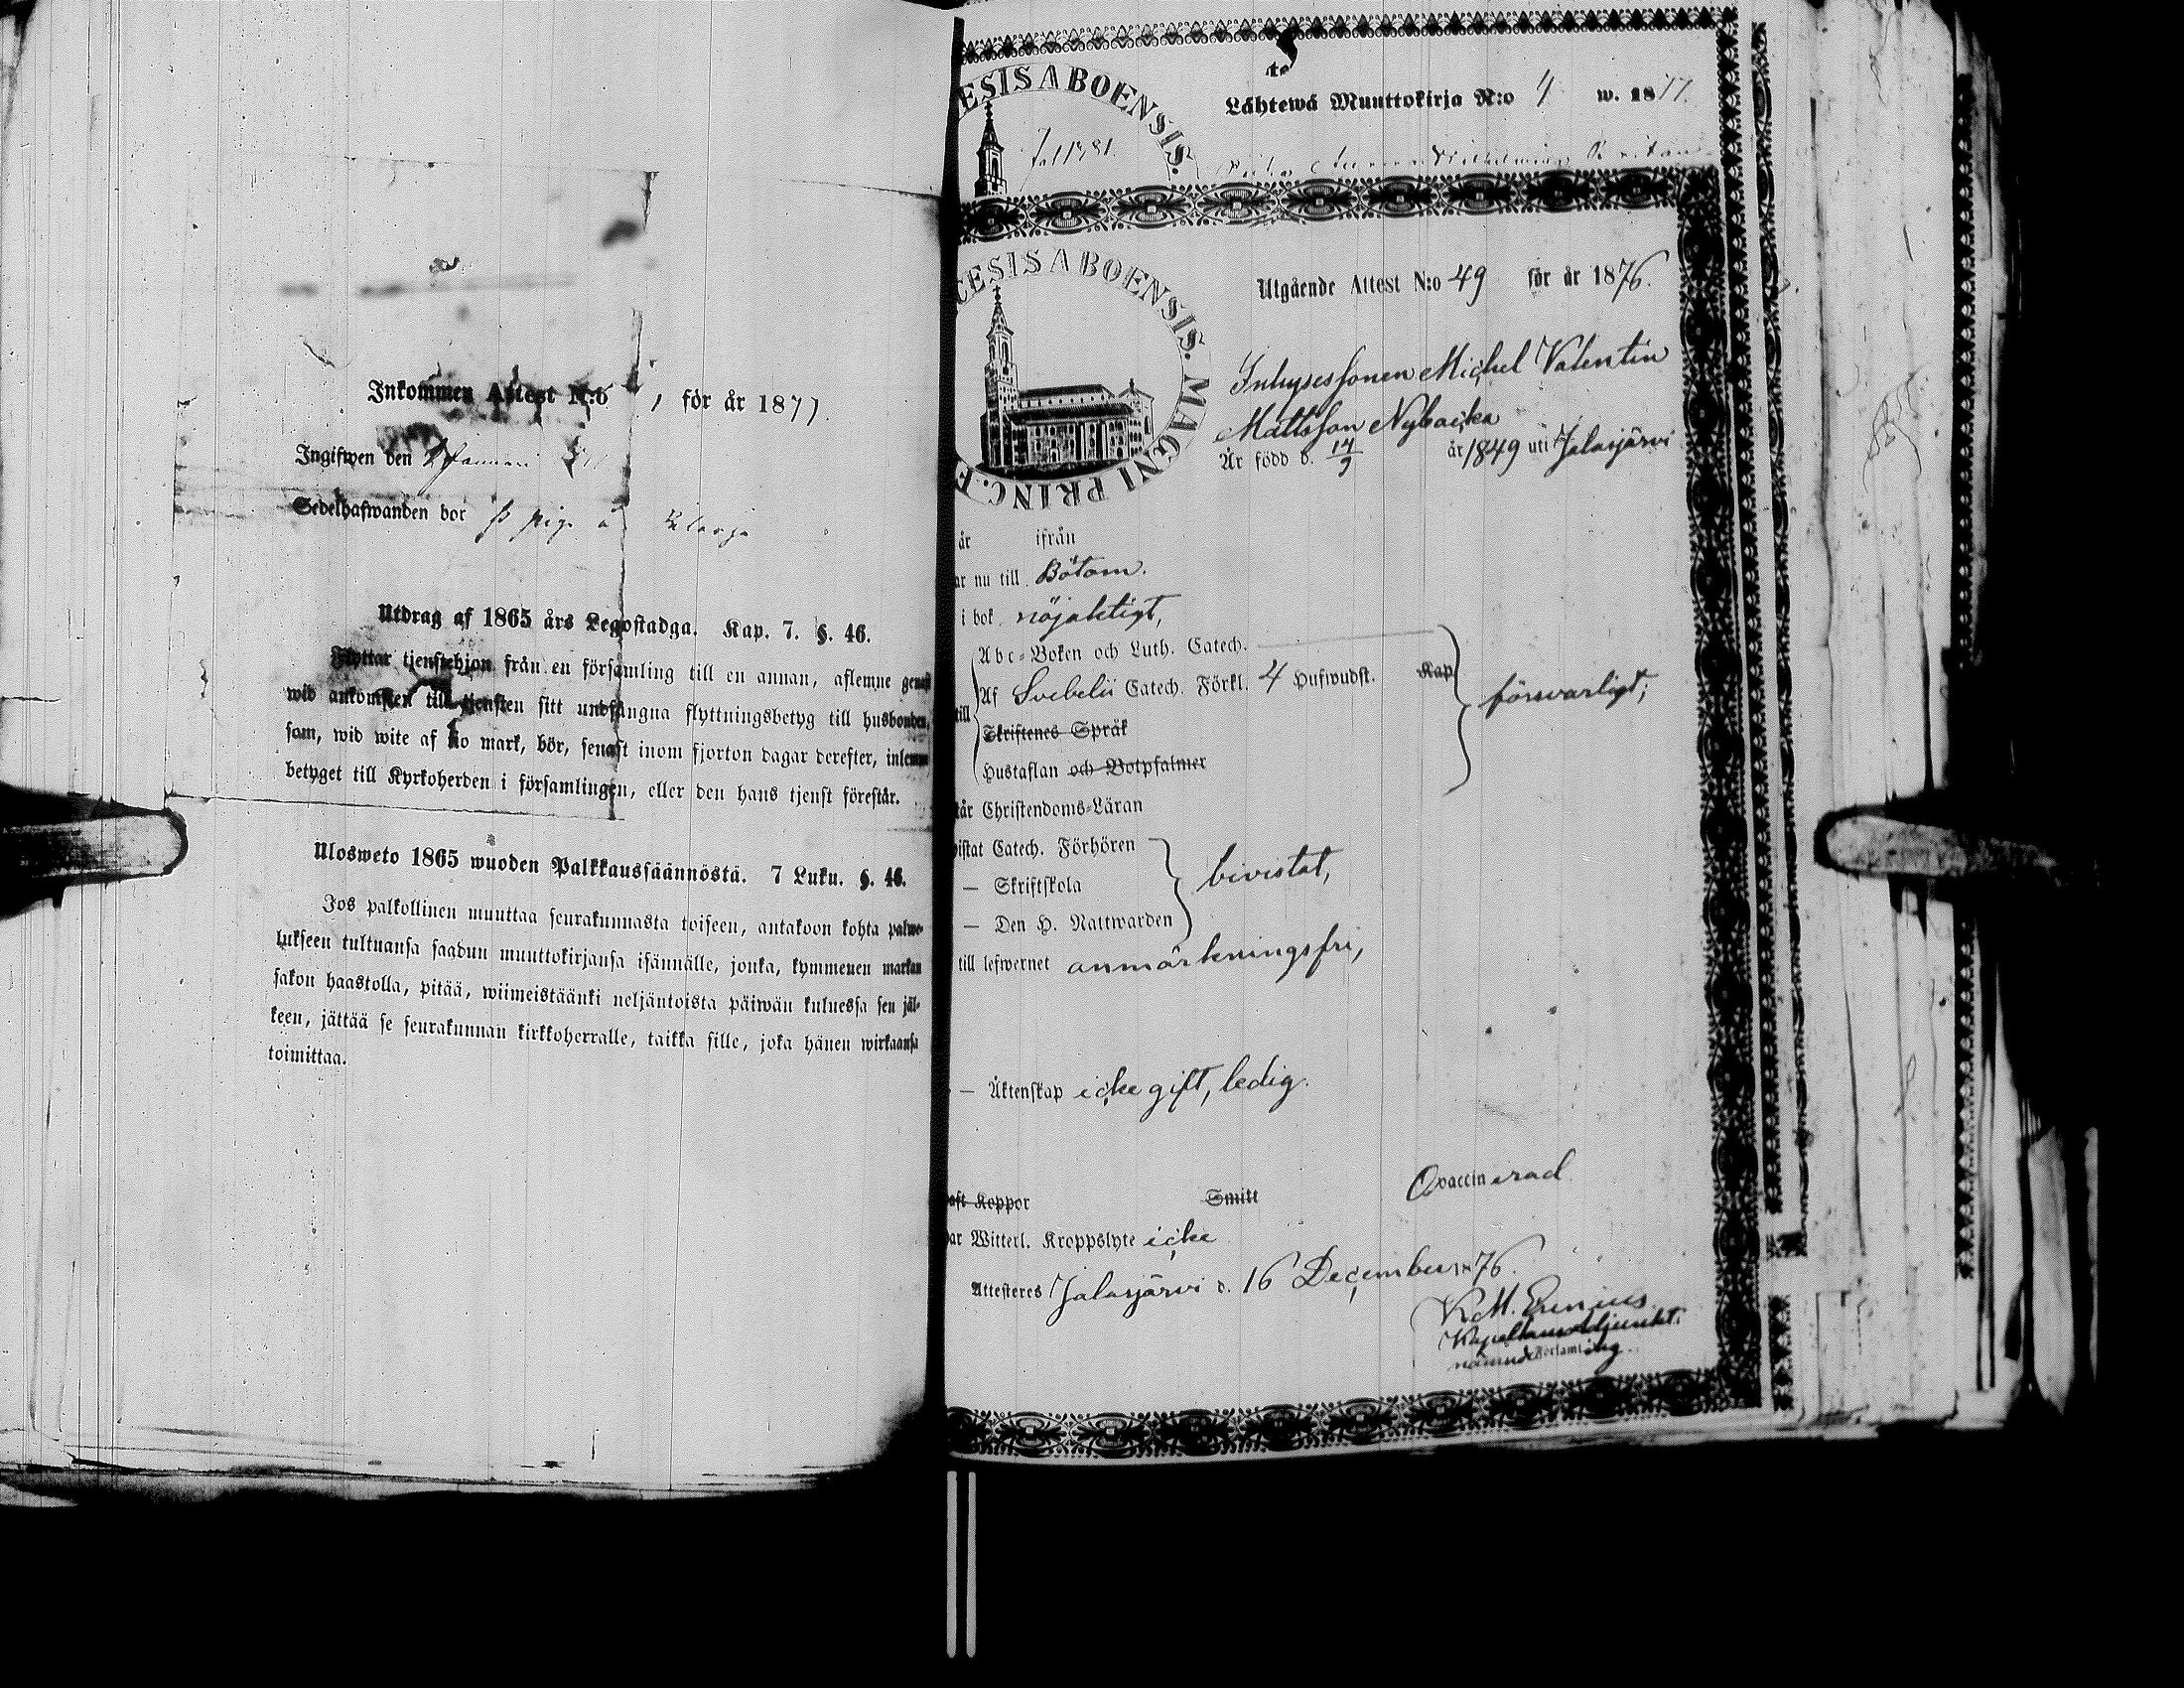 Inkommen Attest N:o 1, för år 1877.
Ingifwen den 2 Januari
Sedelhafwanden bor
Utdrag af 1865 års Legostadga. Kap. 7. §. 46.
Flyttar tjenstehjon från en församling till en annan, aflemne genast
wid ankomsten till tjensten sitt undfångna flyttningsbetyg till husbonden,
som, wid wite af tio mark, bör, senast inom fjorton dagar derefter, inlemna
betyget till Kyrkoherden i församlingen, eller den hans tjenst förestår.
Ulosweto 1865 wuoden Palkkaussäännöstä. 7 Luku. §. 46.
Jos palkollinen muuttaa seurakunnasta toiseen, antakoon kohta palwe-
lukseen tultuansa saadun muuttokirjansa isännälle, jonka, kymmenen markan
sakon haastolla, pitää, wiimeistäänki neljäntoista päiwän kuluessa sen jäl-
keen, jättää se seurakunnan kirkkoherralle, taikka sille, joka hänen wirkaansa
toimittaa.
ESIS ABOENSIS.
Lähtewä Muuttokirja N:o 4 w. 1877.
CESIS ABOENSIS. MAGNI PRINC. F
Utgående Attest N:o 49 för år 1876.
Inhysessonen Michel Valentin
Mattsson Nybacka
Är född d. 14/9 år 1849 uti Jalasjärvi
år ifrån
ar nu till Bötom.
i bok nöjaktigt,
Abc-Boken och Luth. Catech.
till
Af Svebelii Catech. Förkl. 4 Hufwudst. Kap
försvarligt;
Skriftenes Språk
Hustaflan och Botpsalmer
tår Christendoms-Läran
wistat Catech. Förhören
— Skriftskola
bivistat,
— Den H. Nattwarden
till lefwernet anmärkningsfri,
— Äktenskap icke gift, ledig.
aft Koppor Smitt Ovaccinerad
ar Witterl. Kroppslyte icke
Attesteres Jalasjärvi d. 16 December 1876.
K. M. Eunius
Kapellans Adjunkt.
nämnde Församling.